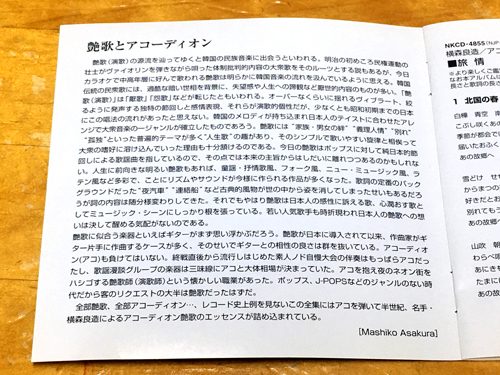 艶歌とアコーディオン
艶歌(演歌)の源流を辿ってゆくと韓国の民族音楽に出合うといわれる。明治の初めころ民権運動の
壮士がヴァイオリンを弾きながら唄った体制批判的内容の大衆歌をそのルーツとする説もあるが、今日
カラオケで中高年層に好んで歌われる艶歌は明らかに韓国音楽の流れを汲んでいるように思える。韓国
伝統の民衆歌には、過酷な暗い世相を背景に、失望感や人生への躊躇など厭世的内容のものが多い。「艶
歌(演歌)」は「厭歌」「怨歌」などが転じたともいわれる。オーバーなくらいに揺れるヴィブラート、絞
るように発声する独特の節回しと感情表現、それらが演歌的個性だが、少なくとも昭和初期までの日本
にこの唱法の流れがあったと思えない。韓国のメロディが持ち込まれ日本人のテイストに合わせたアレ
ンジで大衆音楽の一ジャンルが確立したものであろう。艶歌には“家族・男女の絆”“義理人情”“別れ”
“孤独”といった普遍的テーマが多く“人生歌”の趣があり、そのシンプルで歌いやすい旋律と相俟って
大衆の嗜好に溶け込んでいった理由も十分頷けるのである。今日の艶歌はポップスに対して純日本的節
回しによる歌謡曲を指しているので、その点では本来の主旨からはしだいに離れつつあるのかもしれな
い。人生に前向きな明るい艶歌もあれば、童謡・抒情歌風、フォーク風、ニュー・ミュージック風、ラ
テン風など多彩で、ことにリズムやサウンドが今様に作られる作品が多くなった。歌詞の定番のバック
グラウンドだった“夜汽車”“連絡船”など古典的風物が世の中から姿を消してしまったせいもあるだろ
うが詞の内容は随分様変わりしてきた。それでもやはり艶歌は日本人の感性に訴える歌、心潤おす歌と
してミュージック・シーンにしっかり根を張っている。若い人気歌手も時折現われ日本人の艶歌への想
いは決して醒める気配がないのである。
艶歌に似合う楽器といえばギターがまず思い浮かぶだろう。艶歌が日本に導入されて以来、作曲家がギ
ター片手に作曲するケースが多く、そのせいでギターとの相性の良さは群を抜いている。アコーディオン
(アコ)も負けてはいない。終戦直後から流行しはじめた素人ノド自慢大会の伴奏はもっぱらアコだっ
たし、歌謡漫談グループの楽器は三味線にアコと大体相場が決まっていた。アコを抱え夜のネオン街を
ハシゴする艶歌師(演歌師)という懐かしい職業があった。ポップス、J-POPSなどのジャンルのない時
代だから客のリクエストの大半は艶歌だったはずだ。
全部艶歌、全部アコーディオン…、レコード史上例を見ないこの全集にはアコを弾いて半世紀、名手・
横森良造によるアコーディオン艶歌のエッセンスが詰め込まれている。
[Mashiko Asakura]
NKCD-4855
横森良造/ア
■旅 情
1 北国の春
白樺 青空 南
こぶし咲くあの
季節が都会では
届いたおふくろ
あの故郷
雪どけ せせ